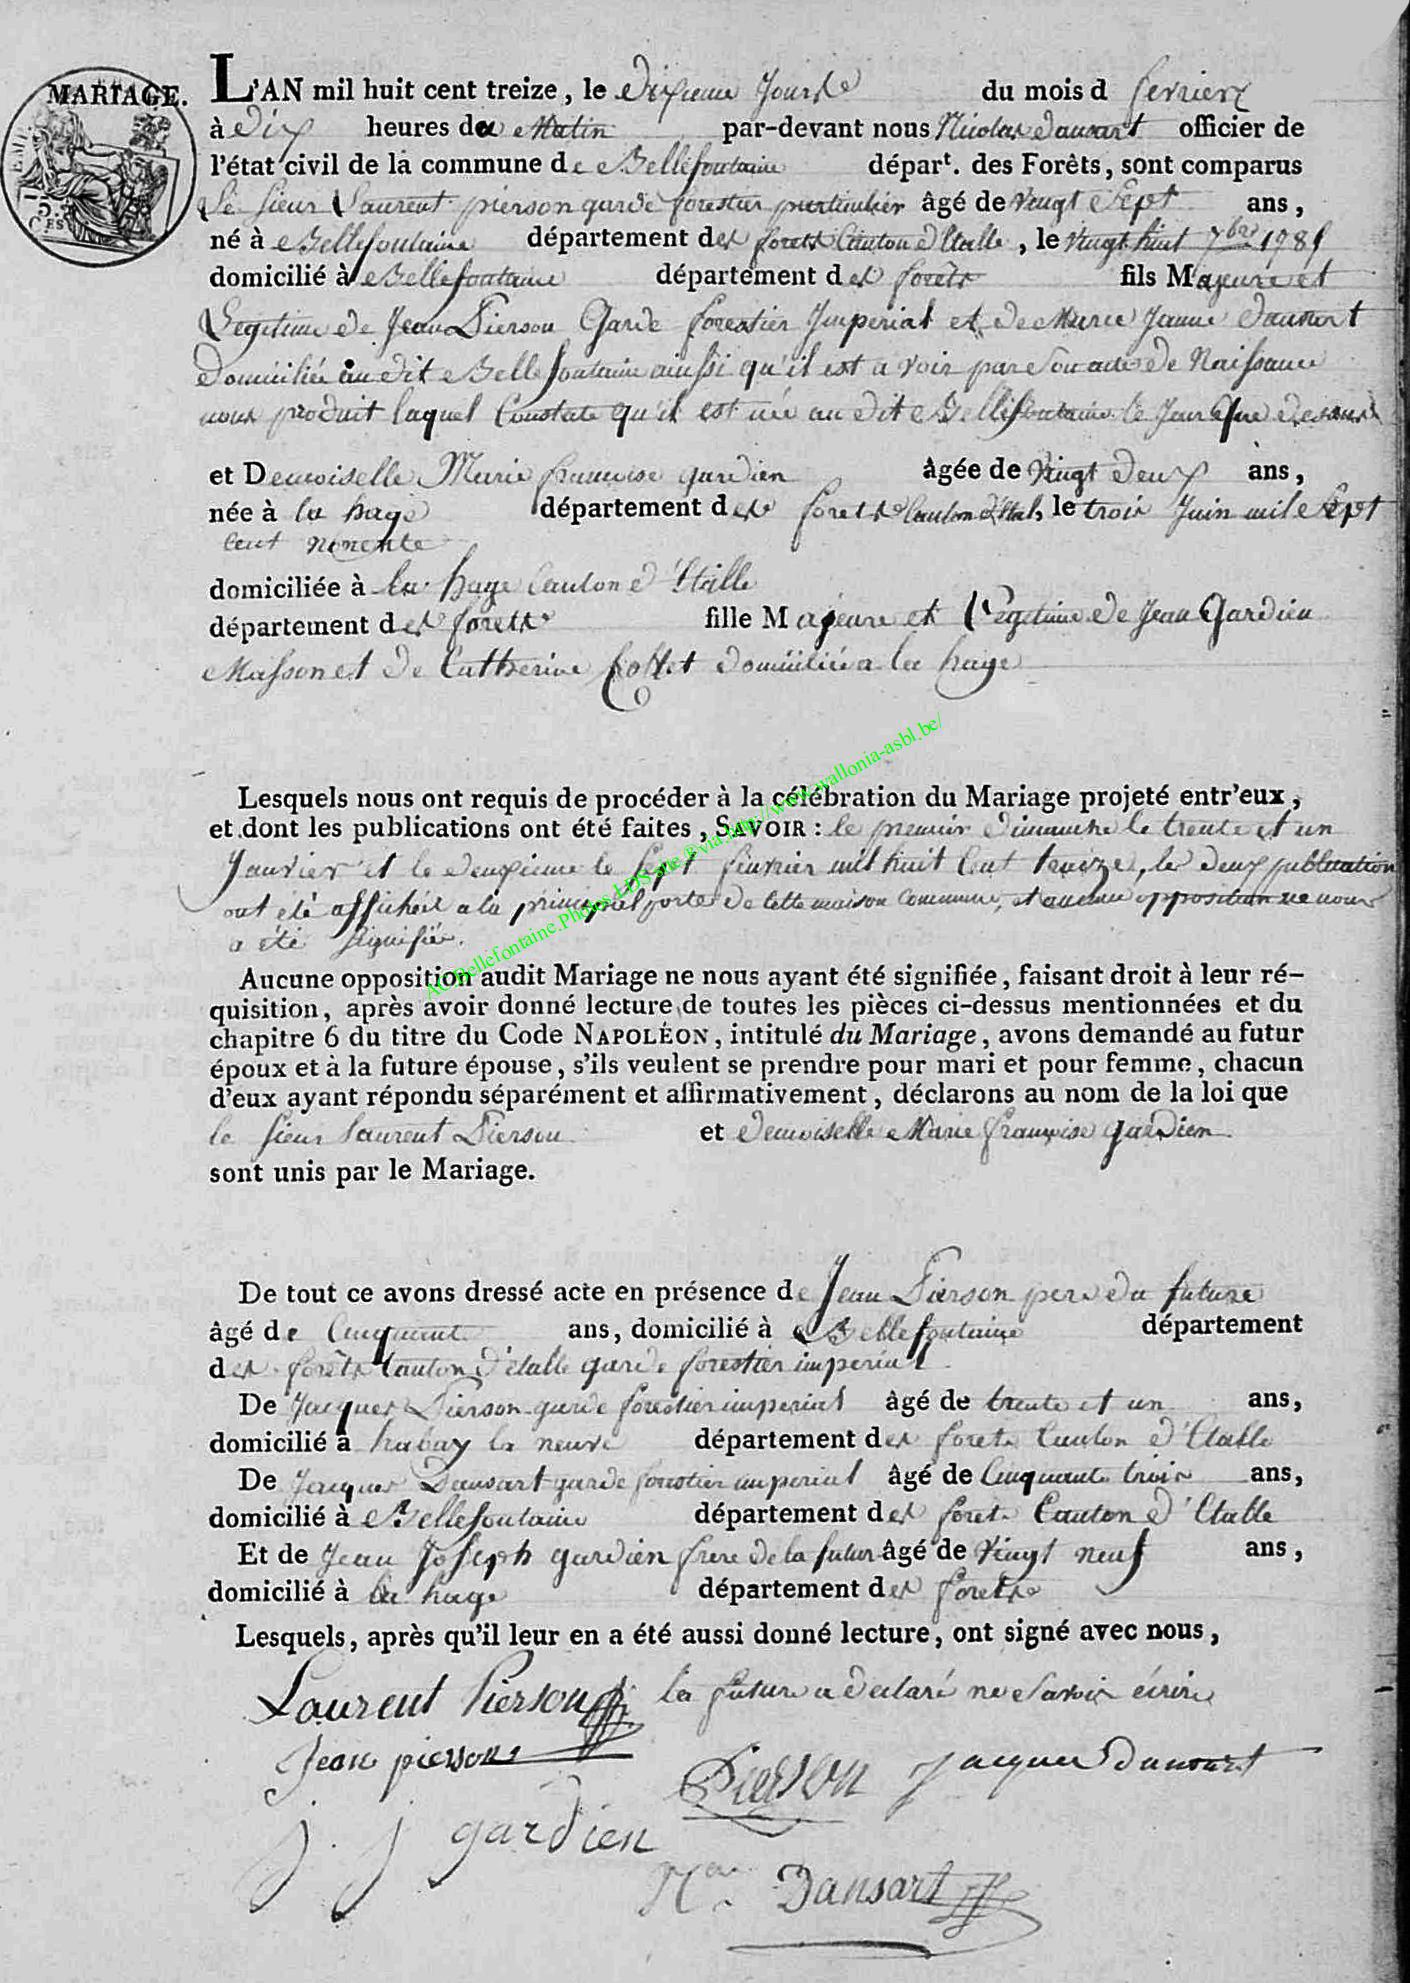 MARIAGE.
L'AN mil huit cent treize, le dixieme Jour de du mois d fevrier
à dix heures du Matin par-devant nous Nicolas dansart officier de
l'état civil de la commune de Bellefontaine départ. des Forêts, sont comparus
Le sieur Laurent pierson garde forestier particulier âgé de vingt Sept ans,
né à Bellefontaine département des forets Canton d'Etalle, le vingt huit 7bre 1785
domicilié à Bellefontaine département des forêts fils Majeure et
Legitime de Jean Pierson Garde forestier Imperial et de Marie Jeanne dansart
domiciliée au dit Bellefontaine ainssi qu'il est a voir par son acte de Naissance
nous produit laquel Constate qu'il est née au dit Bellefontaine le Jour que dessus
et Demoiselle Marie francoise gardien âgée de vingt deux ans,
née à la hage département des forets Canton d'Etal, le trois Juin mil Sept
Cent nonente
domiciliée à la hage Canton d'Etalle
département des forets fille Majeure et Legitime de Jean Gardien
Masson et de Catherine Collet domiciliée a la hage
Lesquels nous ont requis de procéder à la célébration du Mariage projeté entr'eux,
et dont les publications ont été faites, SAVOIR : le premier dimanche le trente et un
Janvier et le deuxieme le Sept fevrier mil huit Cent treize, les deux publication
ont été affichéé a la principal porte de cette maison commune, et aucune opposition ne nous
a été signifiée.
Aucune opposition audit Mariage ne nous ayant été signifiée, faisant droit à leur ré-
quisition, après avoir donné lecture de toutes les pièces ci-dessus mentionnées et du
chapitre 6 du titre du Code NAPOLÉON, intitulé du Mariage, avons demandé au futur
époux et à la future épouse, s'ils veulent se prendre pour mari et pour femme, chacun
d'eux ayant répondu séparément et affirmativement, déclarons au nom de la loi que
le sieur Laurent Pierson et demoiselle Marie françoise gardien
sont unis par le Mariage.
De tout ce avons dressé acte en présence de Jean Pierson pere du future
âgé de Cinquante ans, domicilié à Bellefontaine département
des forêts Canton d'etalle garde forestier imperial
De Jacques Pierson garde forestier imperial âgé de trente et un ans,
domicilié à habay la neuve département des forets Canton d'Etalle
De Jacques Dansart garde forestier imperial âgé de Cinquante trois ans,
domicilié à Bellefontaine département des foret Canton d'Etalle
Et de Jean Joseph gardien frere de la futur âgé de vingt neuf ans,
domicilié à la hage département des forets
Lesquels, après qu'il leur en a été aussi donné lecture, ont signé avec nous,
Laurent Pierson la future a declaré ne Savoir écrire
Jean pierson
Pierson Jacques Dansart
J. J gardien
Nas Dansart
AC.Bellefontaine.Photos.LDS.site.®via.http://www.wallonia-asbl.be/